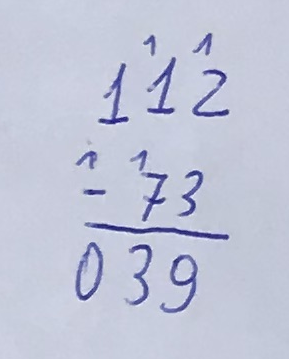 1 1
112
1 1
- 73
039